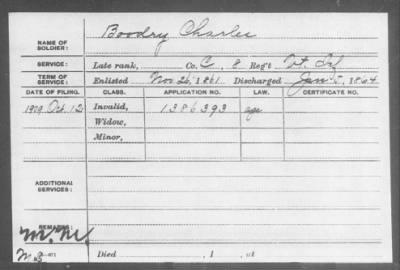 NAME OF SOLDIER: Boodry Charles
SERVICE: Late rank, Co. C, 8 Reg't Vt. Inf
TERM OF SERVICE: Enlisted Nov 26, 1861 Discharged Jan 5, 1864
DATE OF FILING. CLASS. APPLICATION NO. LAW. CERTIFICATE NO.
Oct. 12 Invalid, 1386393 age
Widow,
Minor,
ADDITIONAL SERVICES:
REMARKS:
M.M.
Died , 1 , at